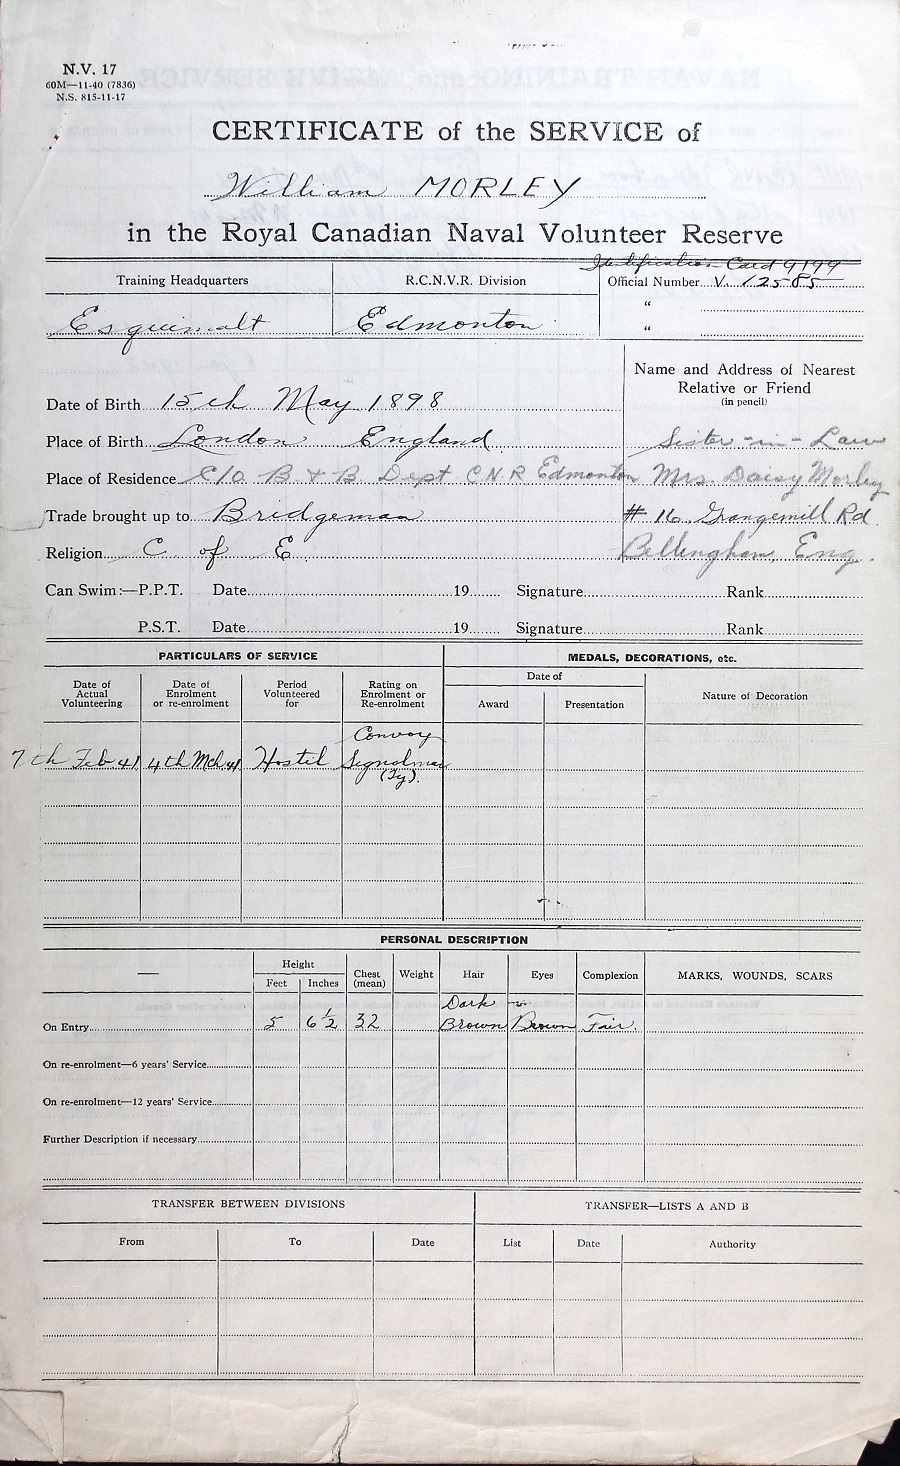 N.V. 17
60M—11-40 (7836)
N.S. 815-11-17
CERTIFICATE of the SERVICE of
William MORLEY
in the Royal Canadian Naval Volunteer Reserve
Identification Card 9199
Training Headquarters R.C.N.V.R. Division Official Number V. 12585
"
Esquimalt Edmonton "
Name and Address of Nearest
Relative or Friend
(in pencil)
Date of Birth 15th May 1898
Place of Birth London England Sister-in-Law
Place of Residence C/O B & B Dept C.N.R Edmonton Mrs. Daisy Morley
Trade brought up to Bridgeman # 16 Grangemill Rd
Religion C of E Bellingham, Eng.
Can Swim:—P.P.T. Date 19 Signature Rank
P.S.T. Date 19 Signature Rank
PARTICULARS OF SERVICE MEDALS, DECORATIONS, etc.
Date of Actual Volunteering Date of Enrolment or re-enrolment Period Volunteered for Rating on Enrolment or Re-enrolment Date of Award Presentation Nature of Decoration
Convoy
7th Feb 41 4th Mch 41 Hostel Signalman
(Ty).
PERSONAL DESCRIPTION
— Height Feet Inches Chest (mean) Weight Hair Eyes Complexion MARKS, WOUNDS, SCARS
Dark
On Entry 5 6½ 32 Brown Brown Fair.
On re-enrolment—6 years' Service
On re-enrolment—12 years' Service
Further Description if necessary
TRANSFER BETWEEN DIVISIONS TRANSFER—LISTS A AND B
From To Date List Date Authority